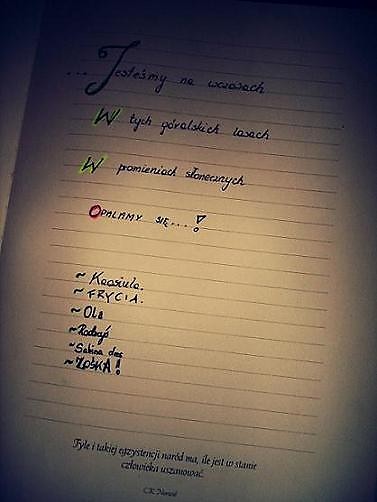 ... Jesteśmy na wczasach
W tych góralskich lasach
W pomieniach słonecznych
OPALAMY SIĘ...!
~ Kasiula.
~ FRYCIA.
~ Ola
~ Sabina
~ ZOŚKA!
Tyle i takiej egzystencji naród ma, ile jest w stanie
człowieka uszanować.
C.K. Norwid